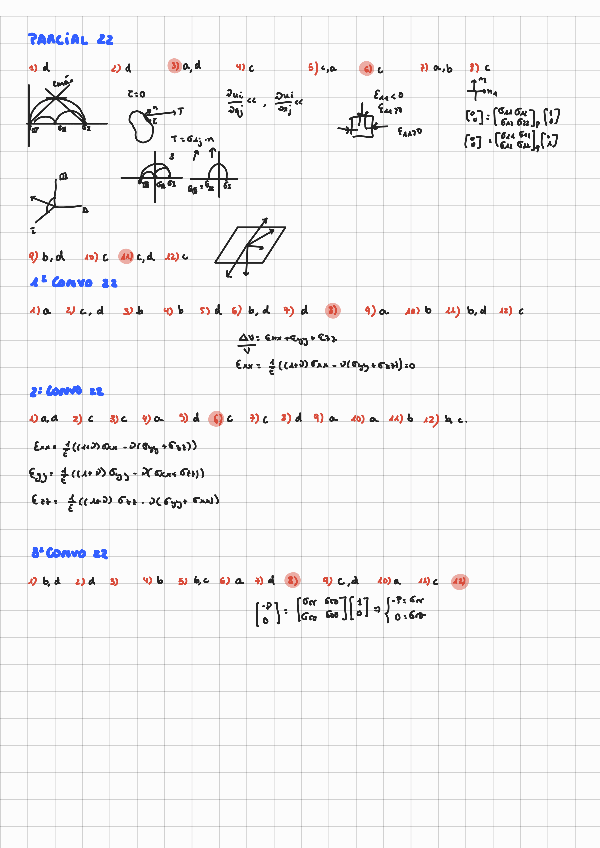 PARCIAL 22
1) d 2) d 3) a, d 4) c 5) c, a 6) c 7) a, b 8) c
τ=0
T
T = σij · n
∂ui/∂aj << , ∂ui/∂xj <<
ε11 < 0
ε11 > 0
n2
n1
[0 0] = [σ11 σ12 σ12 σ22]p [1 0]
III
II
I
9) b, d 10) c 11) c, d 12) c
1ª CONVO 22
1) a 2) c, d 3) b 4) b 5) d 6) b, d 7) d 8) 9) a 10) b 11) b, d 12) c
ΔV/V = εxx + εyy + εzz
εxx = 1/E ((1+ν) σxx - ν(σyy + σzz)) = 0
2ª CONVO 22
1) a, d 2) c 3) c 4) a 5) d 6) c 7) c 8) d 9) a 10) a 11) b 12) b, c.
εxx = 1/E ((1+ν) σxx - ν(σyy + σzz))
εyy = 1/E ((1+ν) σyy - ν(σxx + σzz))
εzz = 1/E ((1+ν) σzz - ν(σyy + σxx))
3ª CONVO 22
1) b, d 2) d 3) 4) b 5) b, c 6) a 7) d 8) 9) c, d 10) a 11) c 12)
[-P 0] = [σrr σrθ σrθ σθθ] [1 0] ⇒ { -P = σrr
0 = σrθ